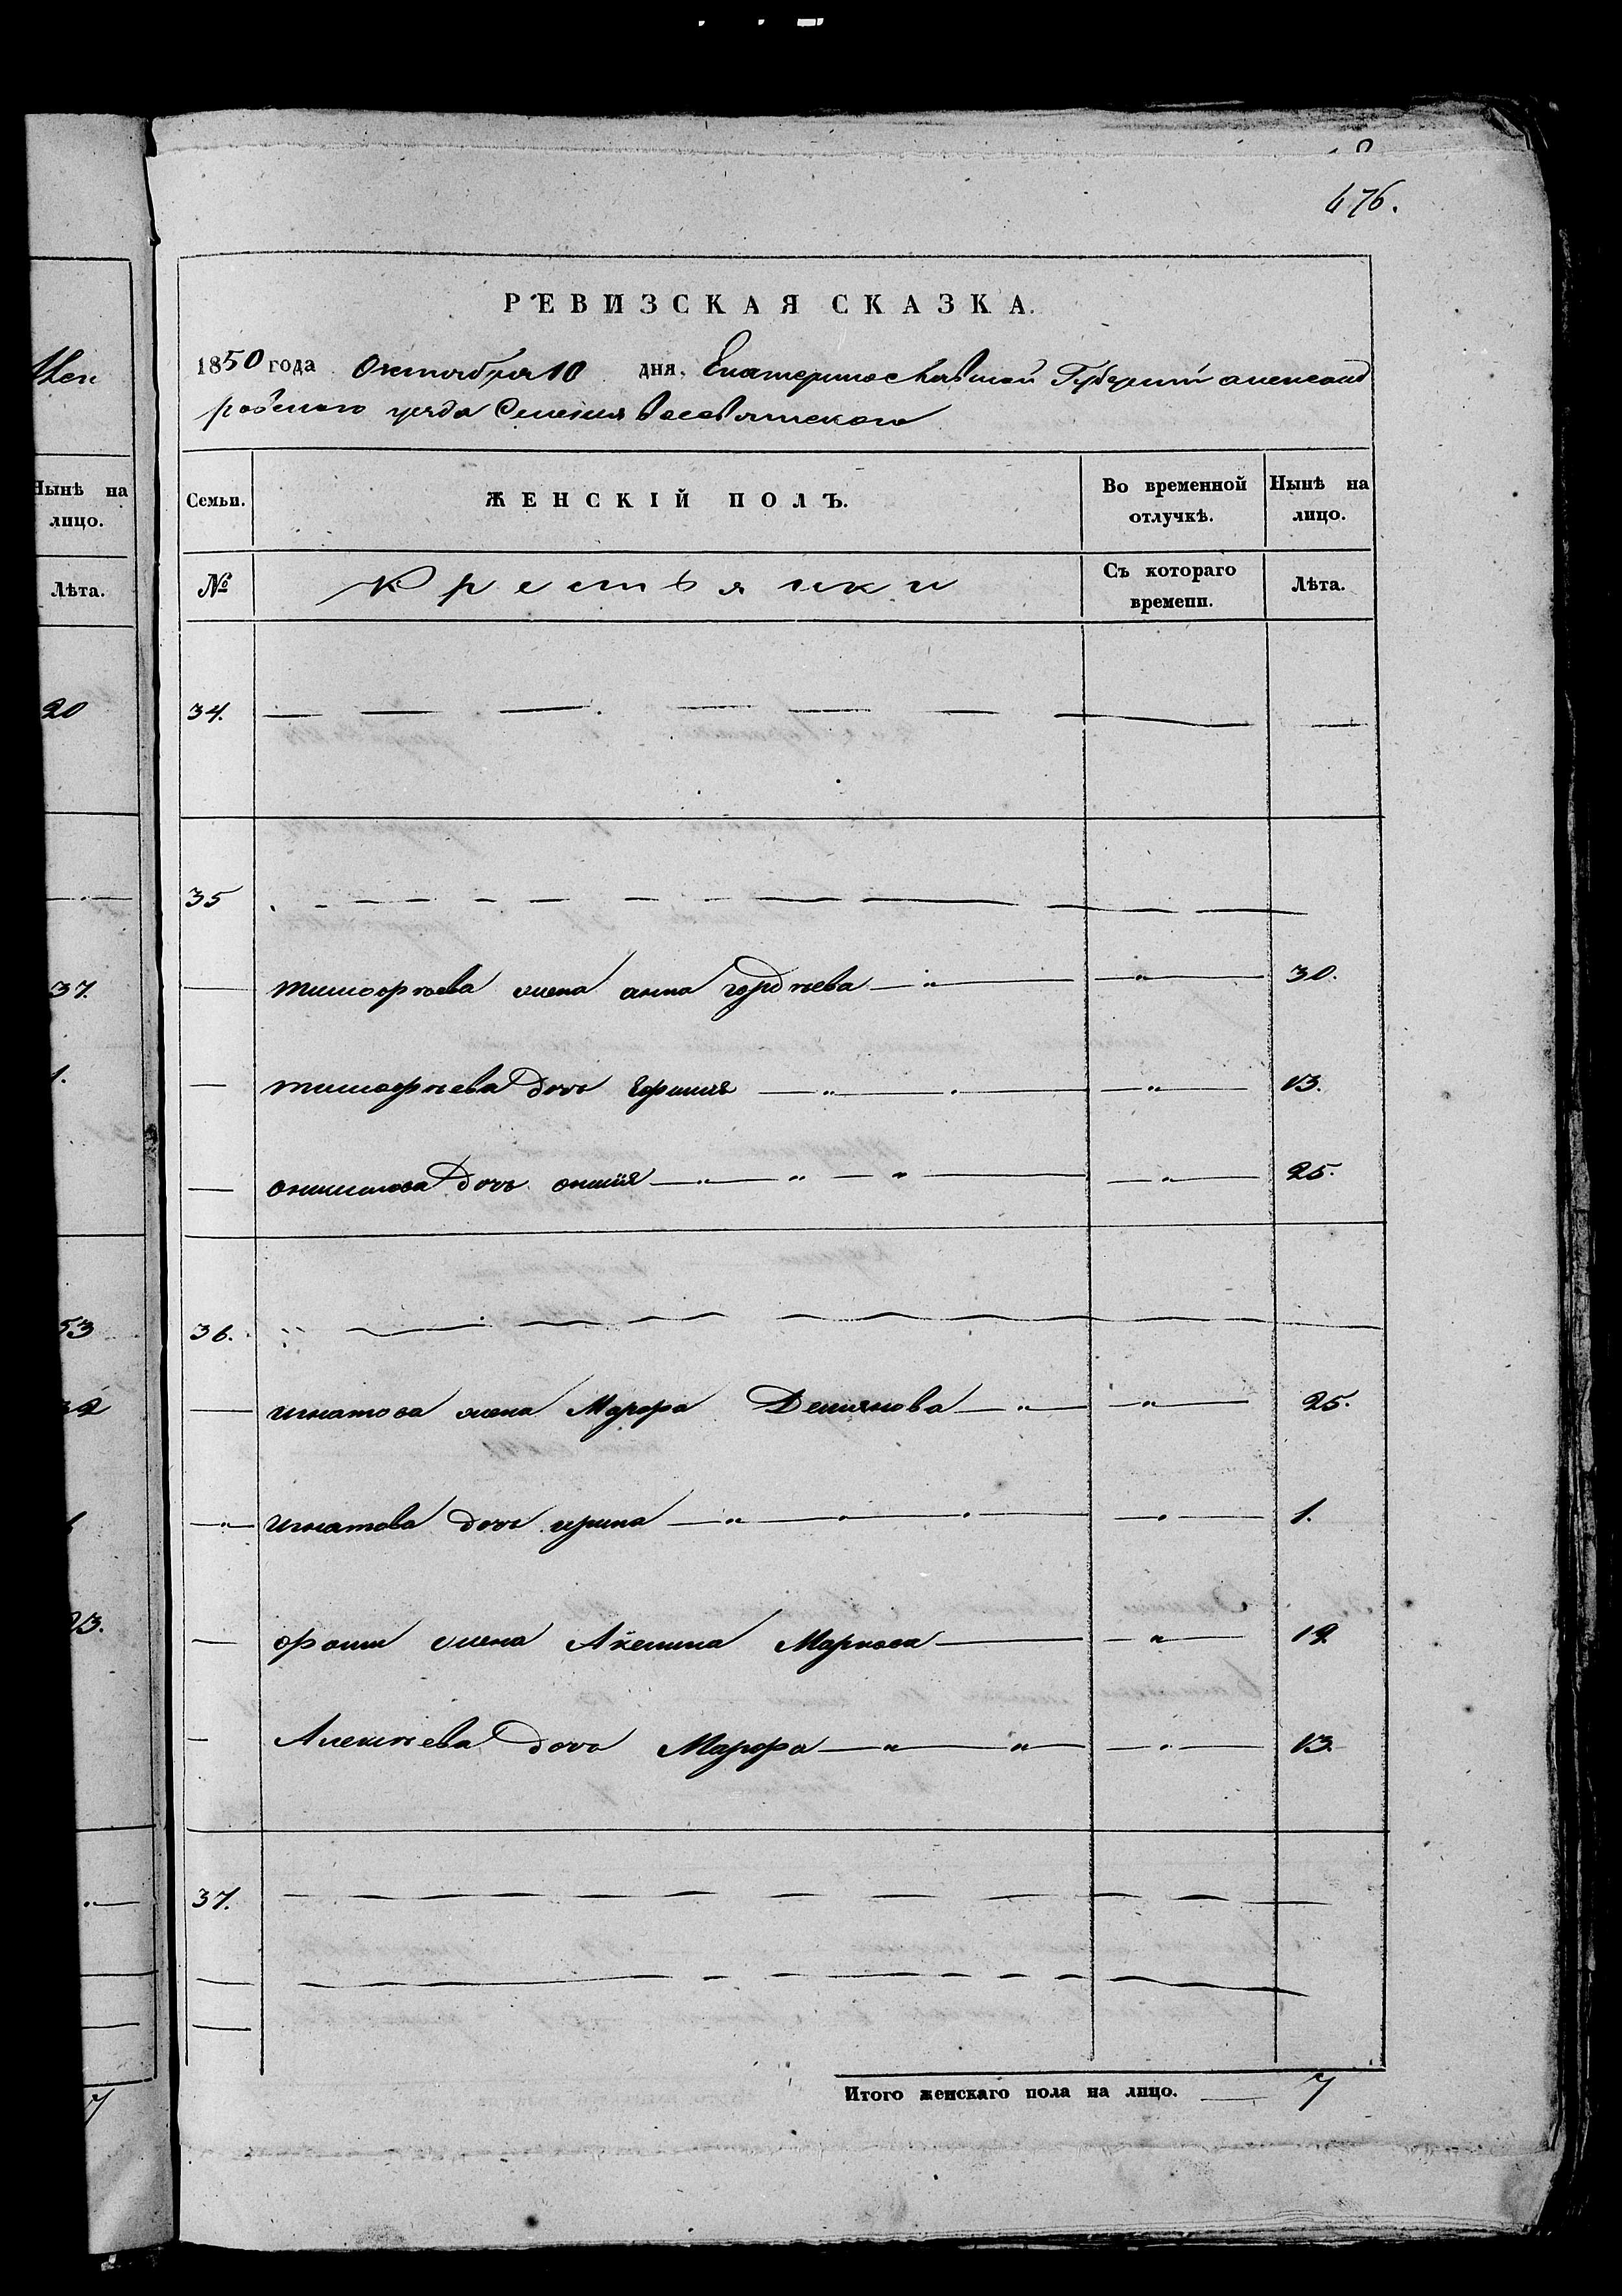 476.
РЕВИЗСКАЯ СКАЗКА.
1850 года Октября 10 дня, Екатеринославской Губернии александ
ровского уезда Селения
Семьи. ЖЕНСКІЙ ПОЛЪ. Во временной отлучкѣ. Нынѣ на лицо.
№ Крестьянки Съ котораго времени. Лѣта.
34. — — — — — — — —
35 — — — — — — — —
— тимофѣева жена анна гордѣева — " — — " — 30.
— тимофѣева дочь Ефимия — " — — " — 13.
— онисимова дочь — " — " — " — — " — 25.
36. — — — — — — — —
— игнатова жена Марфа Демянова — " — — " — 25.
— " — игнатова дочь ирина — " — — " — 1.
— фоти жена Акелина Маркова — — " — 19.
— Алексѣева дочь Марфа — " — " — — " — 13.
37. — — — — — — — —
— — — — — — — —
—
Итого женскаго пола на лицо. — 7
Жен
Нынѣ на
лицо.
Лѣта.
20
37.
1.
53
32
23.
7